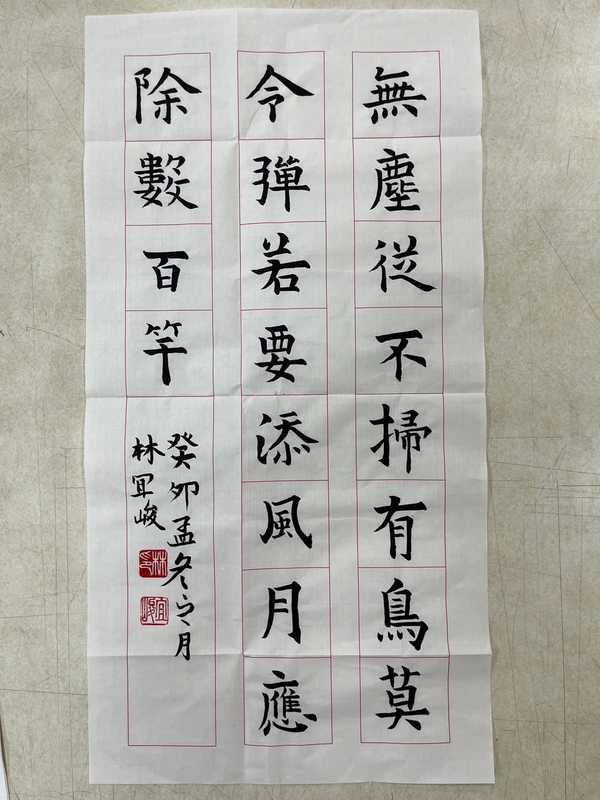 無塵従不掃有鳥莫
令彈若要添風月應
除數百竿
癸卯孟冬之月
林冝峻
林印
宜峻